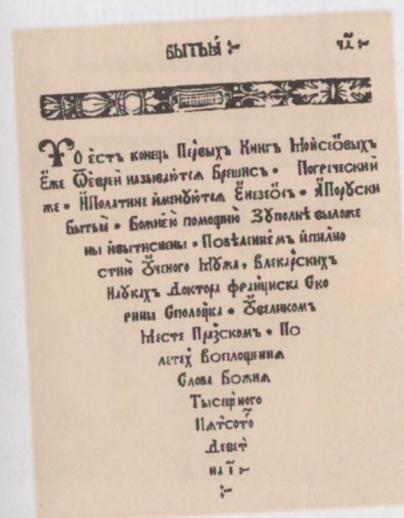 БЫТЬЫ҃ ჻ ЧД҃ ჻
То єсть конець Первыхъ Книгъ Мойсеѡвыхъ
Єже Ѿєврей называются Брешисъ • Погреческий
же • ИПолатине именуются Енезеѡсъ • АПоруски
Бытьи • Божиею помощию Зуполне выложе
ны ивытиснены • Повелениемъ ипилно
стию Ученого Мужа, Влекарскихъ
Наукахъ Доктора Франциска Ско
рины Сполоцка • Ѹвеликомъ
Месте Празскомъ • По
летех Воплощения
Слова Божия
Тысещного
Пятсотѡ
Девет
на і ჻